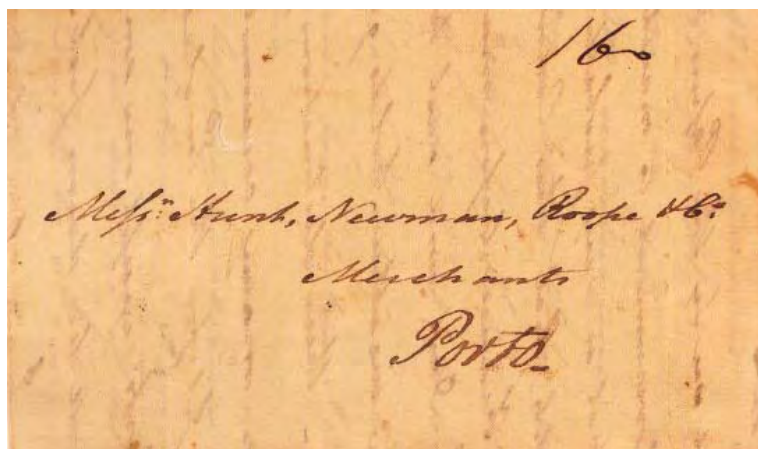 160
Messrs. Hunt, Newman, Roope & Co.
Merchants
Porto